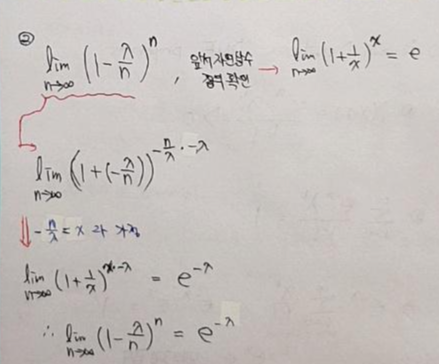 ②
lim n→∞ (1 - λ/n)^n , 앞서 자연상수 정의 확인 → lim n→∞ (1 + 1/x)^x = e
lim n→∞ (1 + (-λ/n))^(-n/λ · -λ)
⇓ -n/λ = x 라 가정
lim n→∞ (1 + 1/x)^(x·-λ) = e^-λ
∴ lim n→∞ (1 - λ/n)^n = e^-λ